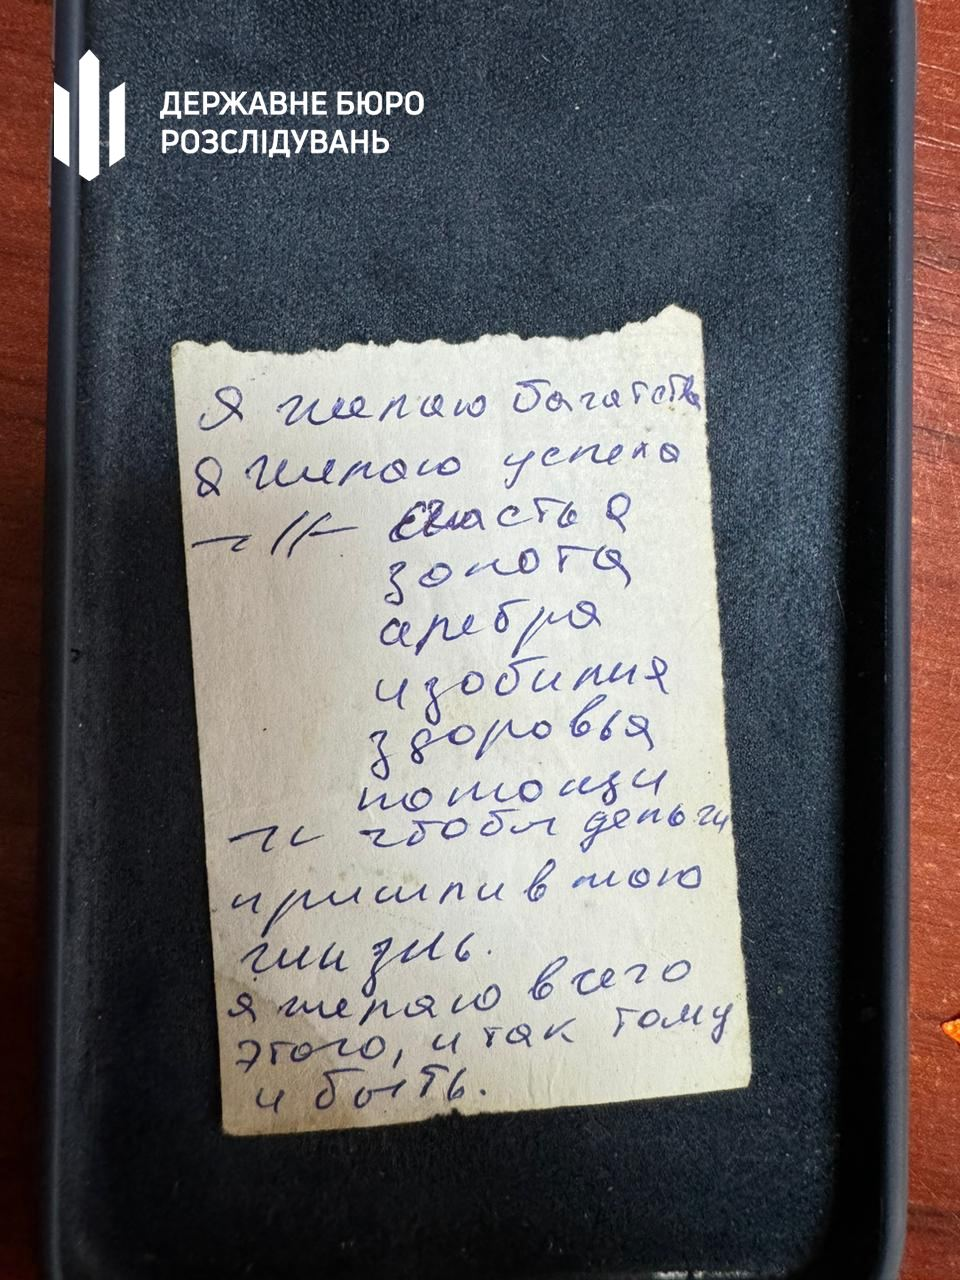 ДЕРЖАВНЕ БЮРО
РОЗСЛІДУВАНЬ
Я желаю богатства
Я желаю успеха
-//- счастья
золота
сребра
изобилия
здоровья
помощи
-//- чтобы деньги
пришли в мою
жизнь.
я желаю всего
этого, и так тому
и быть.